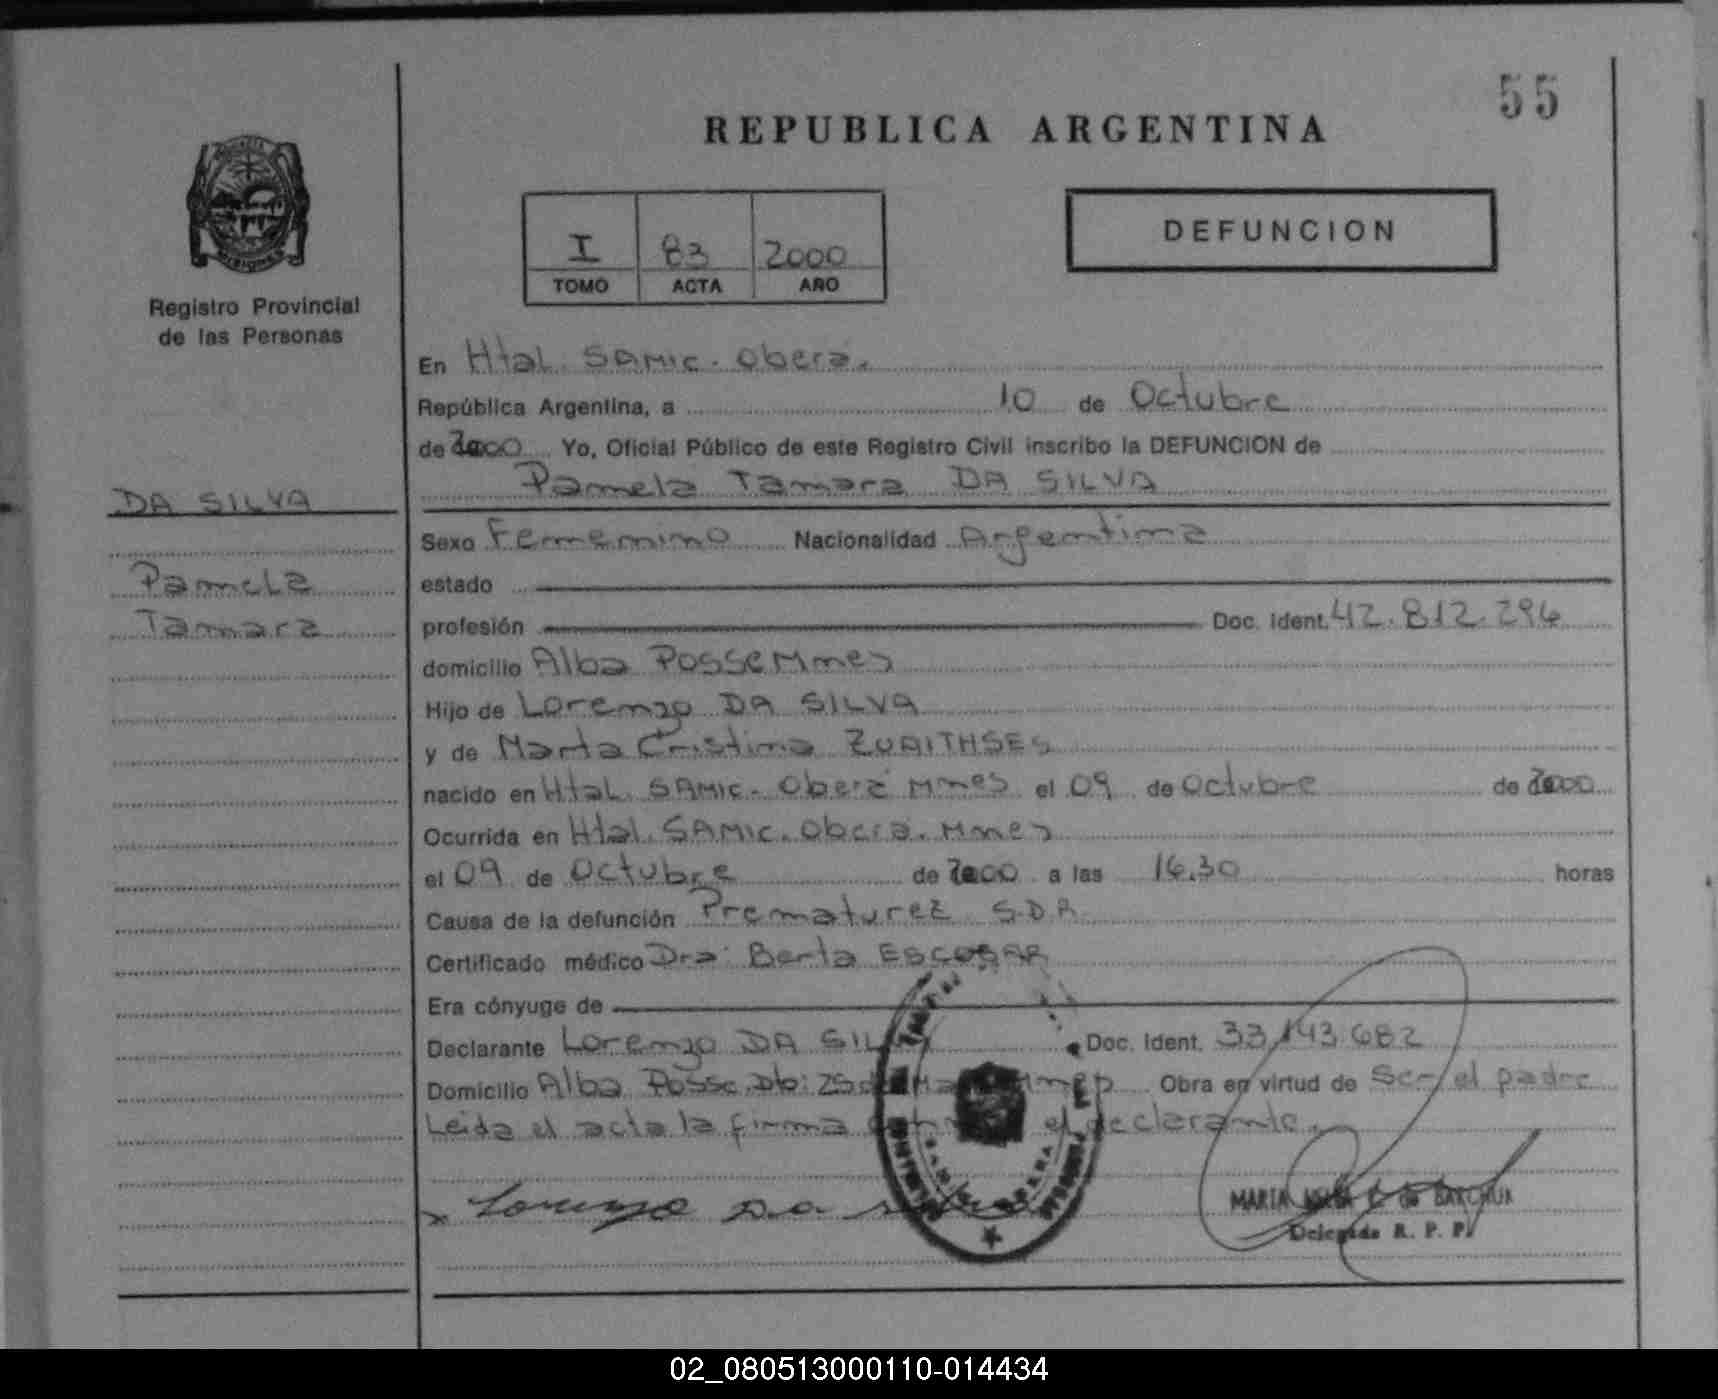 55
REPUBLICA ARGENTINA
I 83 2000
TOMO ACTA AÑO
DEFUNCION
MISIONES
Registro Provincial
de las Personas
En Htal. SAMIC. Oberá.
República Argentina, a 10 de Octubre
de 2000 Yo, Oficial Público de este Registro Civil inscribo la DEFUNCION de
Pamela Tamara DA SILVA
DA SILVA
Pamela
Tamara
Sexo Femenino Nacionalidad Argentina
estado
profesión Doc. Ident. 42.812.296
domicilio Alba Posse Mnes
Hijo de Lorenzo DA SILVA
y de Marta Cristina ZUAITHSES
nacido en Htal. SAMIC. Oberá Mnes el 09 de Octubre de 2000
Ocurrida en Htal. SAMIC. Oberá. Mnes
el 09 de Octubre de 2000 a las 16.30 horas
Causa de la defunción Prematurez S.D.R.
Certificado médico Dra: Berta ESCOBAR
Era cónyuge de
Declarante Lorenzo DA SIL Doc. Ident. 33.143.682
Domicilio Alba Posse. Db: 25 de Obra en virtud de Ser el padre
Leida el acta la firma el declarante.
x Lorenzo Da
MARIA de BARCHUK
Delegada R. P. P.
02_080513000110-014434